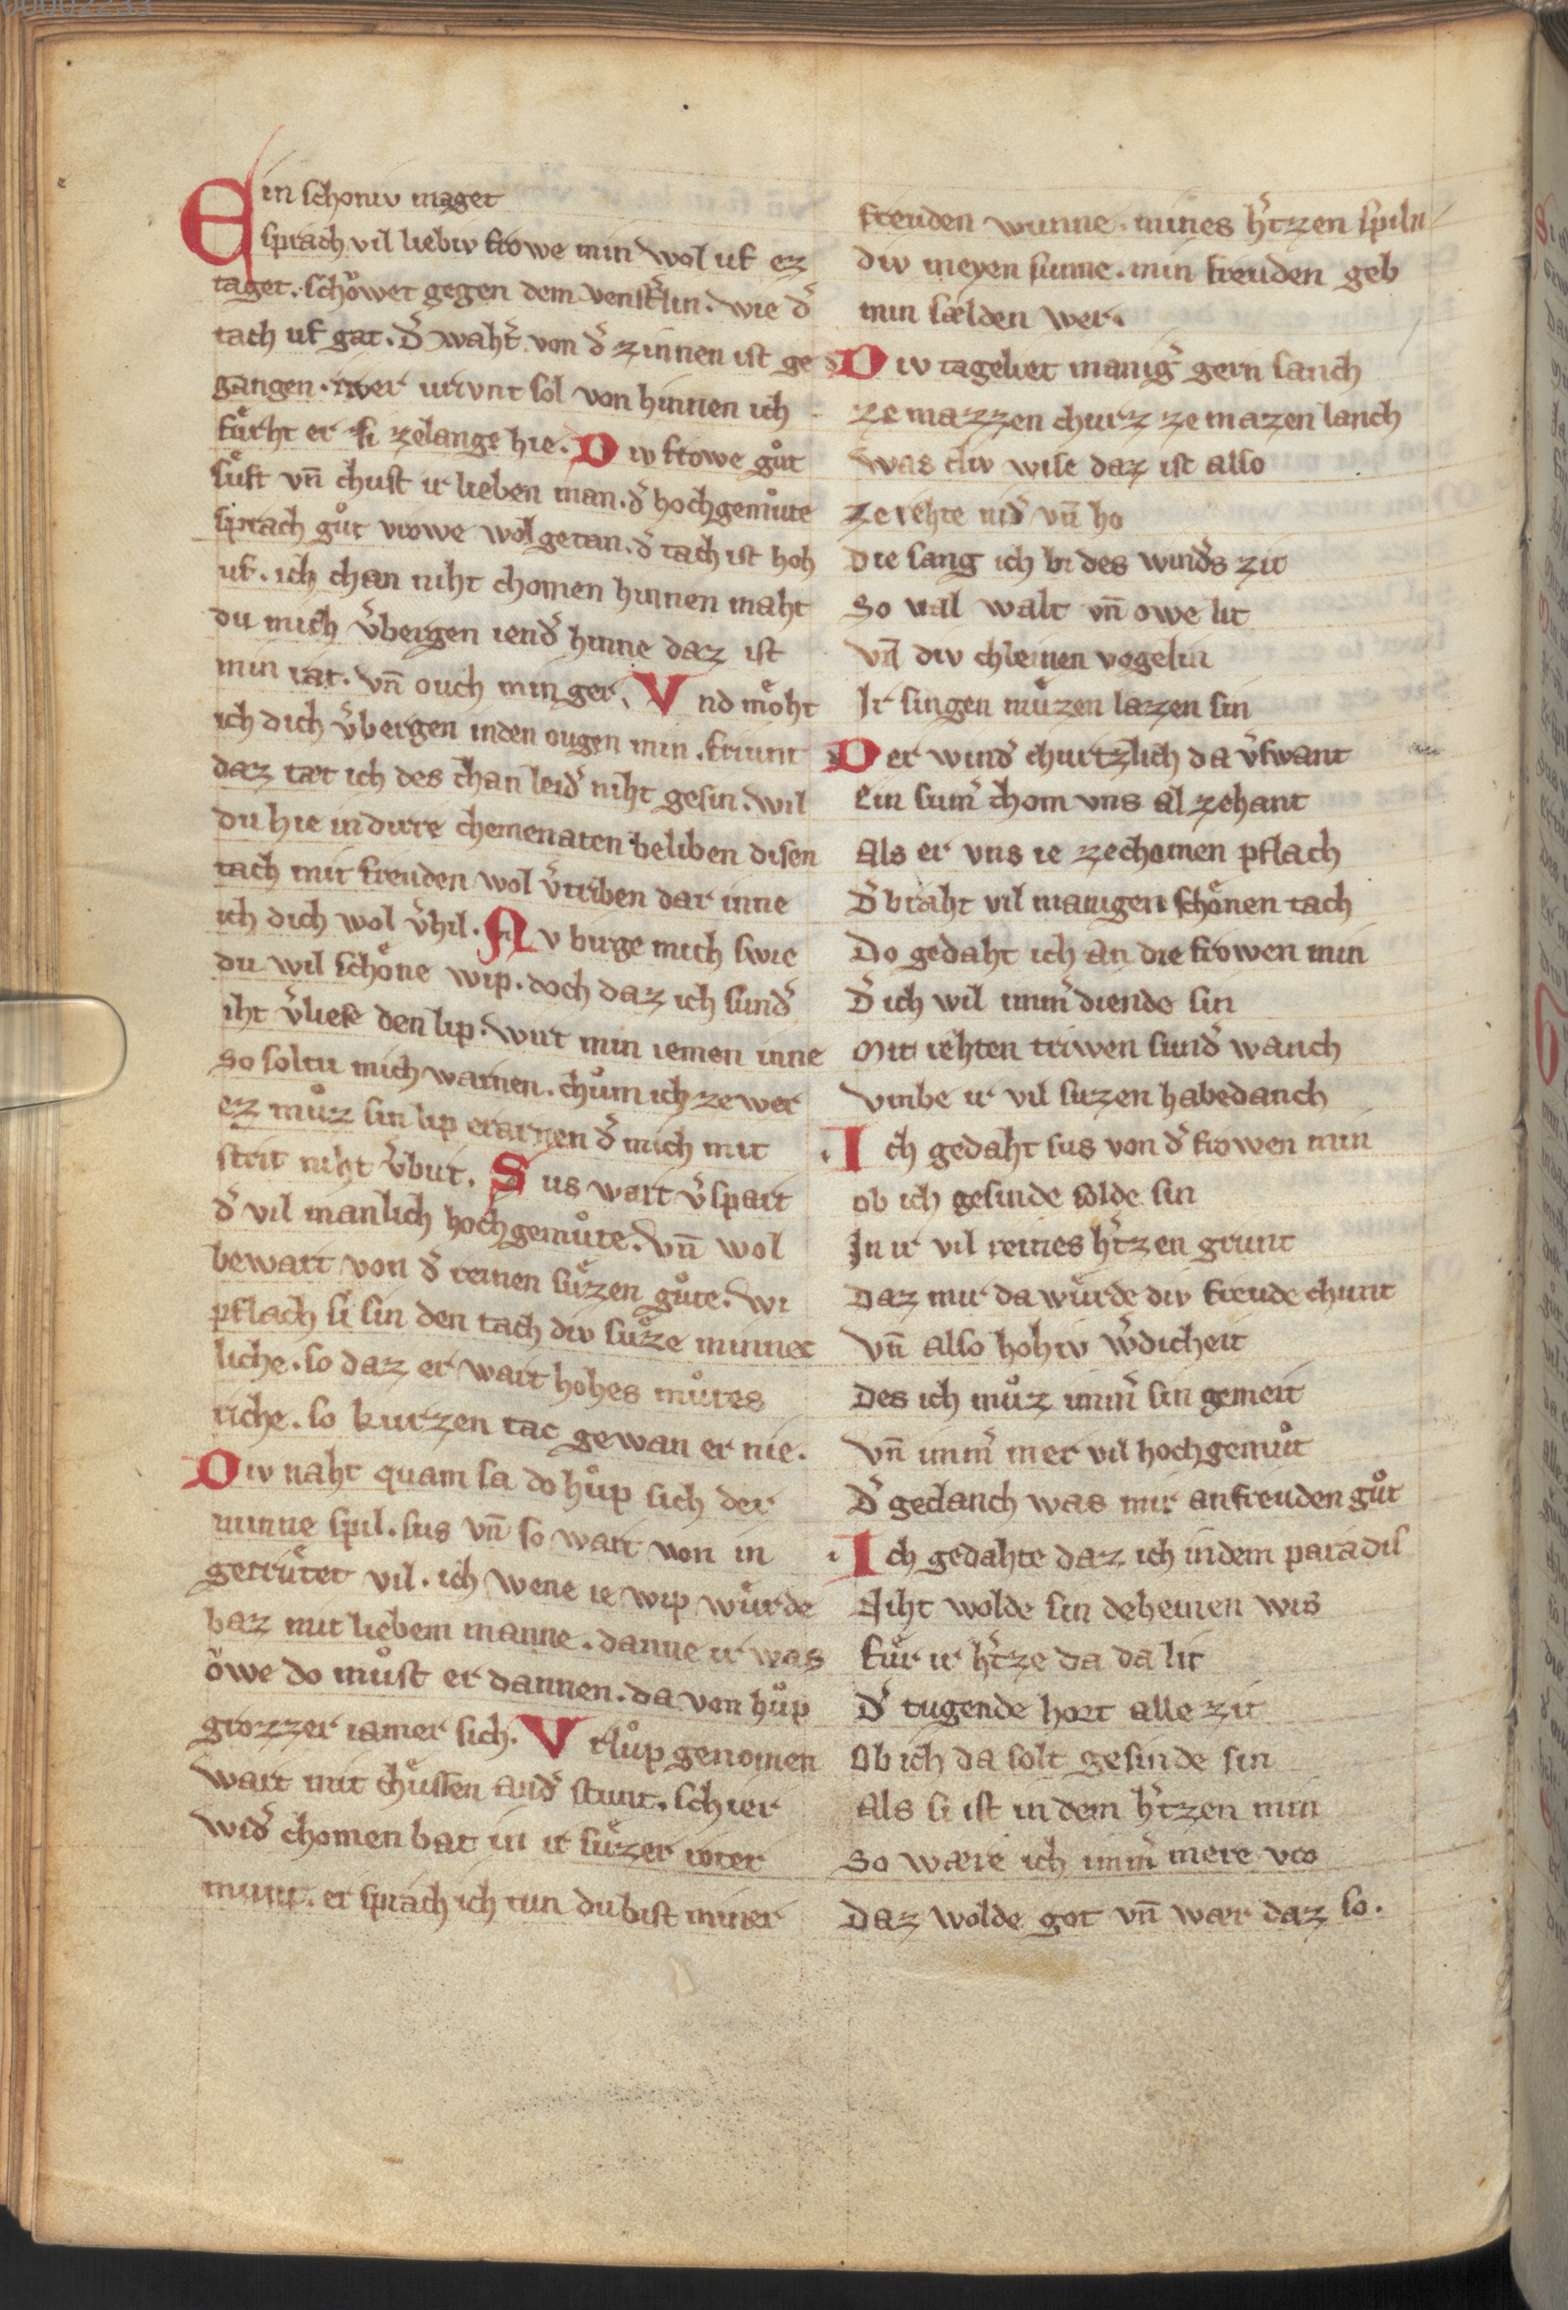 Ein schoniv maget
sprach vil liebiv frowe min wol uf ez
taget. schoͮwet gegen dem venst͛lin. wie d͛
tach uf gat. d͛ waht͛ von d͛ zinnen ist ge
gangen. iwer vrivnt sol von hinnen ich
fuͤrht er si zelange hie. Div frowe guͦt
suͤft vn̄ chust ir lieben man. d͛ hochgemuͦte
sprach guͦt vrowe wol getan. d͛ tach ist hoh
uf. ich chan niht chomen hinnen maht
du mich v͛bergen iend͛ hinne daz ist
min rat. vn̄ ouch min ger. Vnd moͤht
ich dich v͛bergen inden ougen min. friunt
daz tæt ich des chan leid͛ niht gesin. wil
du hie indirre chemenaten beliben disen
tach mit freuden wol v͛triben dar inne
ich dich wol v͛hil. Nv birge mich swie
du wil schoͤne wip. doch daz ich sund͛
iht v͛liese den lip. wirt min iemen inne
so soltu mich warnen. chuͦm ich ze wer
ez muͦz sin lip erarnen d͛ mich mit
strit niht v͛birt. Sus wart v͛spart
d͛ vil manlich hochgemuͦte. vn̄ wol
bewart von d͛ reinen suͤzen guͦte. wi
pflach si sin den tach div suͤze minnec
liche. so daz er wart hohes muͦtes
riche. so kurzen tac gewan er nie.
Div naht quam sa do huͦp sich der
minne spil. sus vn̄ so wart von in
getruͤtet vil. ich wene ie wip wuͤrde
baz mit liebem manne. danne ir was
owe do muͦst er dannen. da von huͦp
grozzer iamer sich. Vrluͦp genomen
wart mit chuͤssen and͛ stunt. schier
wid͛ chomen bat in ir suͤzer roter
munt. er sprach ich tun du bist miner
freuden wunne. mines h͛tzen spiln
div meyen sunne. min freuden geb
min sælden wer.
Div tageliet manig͛ gern sanch
ze mazzen churz ze mazen lanch
was div wise daz ist also
ze rehte nid͛ vn̄ ho
Die sang ich bi des wind͛s zit
So val walt vn̄ owe lit
vn̄ div chleinen vogelin
Ir singen muͤzen lazen sin
Der wind͛ churtzlich da v͛swant
Ein sum͛ chom vns al zehant
Als er vns ie ze chomen pflach
D͛ braht vil manigen schoͤnen tach
Do gedaht ich an die frowen min
D͛ ich wil imm͛ diende sin
Mit rehten triwen sund͛ wanch
vmbe ir vil suzen habedanch
Ich gedaht sus von d͛ frowen min
ob ich gesinde solde sin
In ir vil reines h͛tzen grunt
Daz mir da wuͤrde div freude chunt
vn̄ also hohiv w͛dicheit
Des ich muͦz imm͛ sin gemeit
vn̄ imm͛ mer vil hochgemuͦt
D͛ gedanch was mir anfreuden guͦt
Ich gedahte daz ich indem paradis
Niht wolde sin deheinen wis
fuͤr ir h͛tze da da lit
D͛ tugende hort alle zit
Ob ich da solt gesinde sin
Als si ist in dem h͛tzen min
So wære ich imm͛ mere vro
Daz wolde got vn̄ wær daz so.